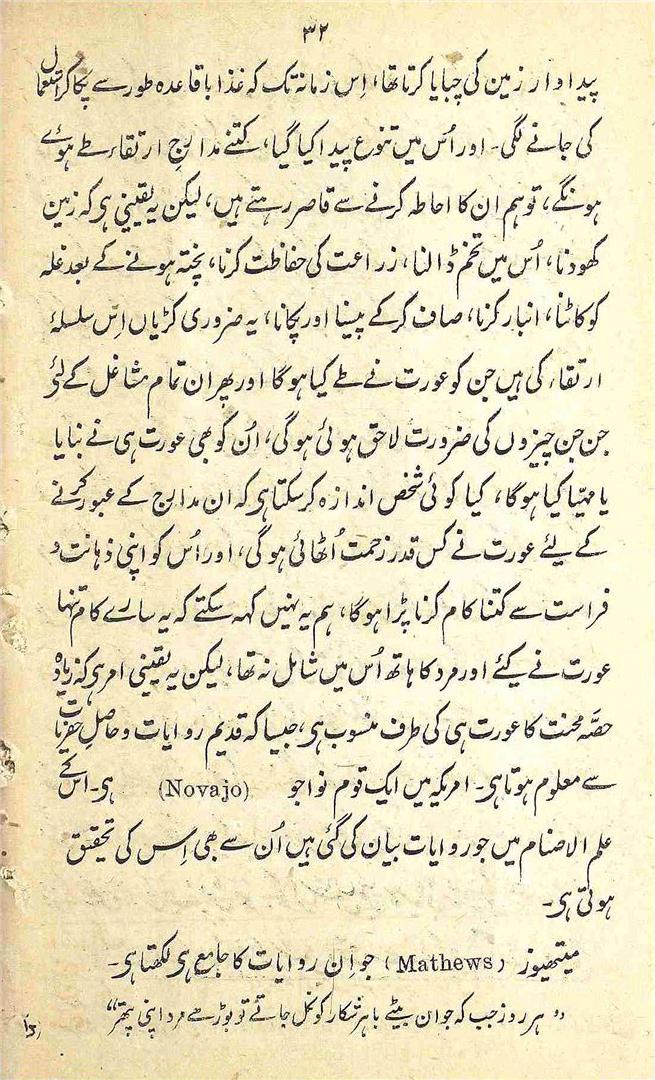 ۳۲
پیداوار زمین کی چبایا کرتا تھا، اِس زمانہ تک کہ غذا باقاعدہ طور سے پکا کر استعمال
کی جانے لگی۔ اور اُس میں تنوع پیدا کیا گیا، کتنے مدارجِ ارتقاء طے ہوئے
ہونگے، تو ہم ان کا احاطہ کرنے سے قاصر رہتے ہیں، لیکن یہ یقینی ہی کہ زمین
کھودنا، اُس میں تخم ڈالنا، زراعت کی حفاظت کرنا، پختہ ہونے کے بعد غلہ
کو کاٹنا، انبار کرنا، صاف کر کے پیسنا اور پکانا، یہ ضروری کڑیاں اِس سلسلۂ
ارتقاء کی ہیں جن کو عورت نے طے کیا ہوگا اور پھر ان تمام مشاغل کے لئی
جن جن چیزوں کی ضرورت لاحق ہوئی ہوگی، اُن کو بھی عورت ہی نے بنایا
یا مہیّا کیا ہوگا، کیا کوئی شخص اندازہ کر سکتا ہی کہ ان مدارج کے عبور کرنے
کے لیئے عورت نے کس قدر زحمت اُٹھائی ہوگی، اور اُس کو اپنی ذہانت و
فراست سے کتنا کام کرنا پڑا ہوگا، ہم یہ نہیں کہہ سکتے کہ یہ سارے کام تنہا
عورت نے کیئے اور مرد کا ہاتھ اُس میں شامل نہ تھا، لیکن یہ یقینی امر ہی کہ زیادہ
حصّہ محنت کا عورت ہی کی طرف منسوب ہی، جیسا کہ قدیم روایات و حاصلِ حفریات
سے معلوم ہوتا ہی۔ امریکہ میں ایک قوم نواجو (Novajo) ہی۔ اسکے
علم الاصنام میں جو روایات بیان کی گئی ہیں اُن سے بھی اِس کی تحقیق
ہوتی ہی۔
میتھیوز (Mathews) جو اِن روایات کا جامع ہی لکھتا ہی۔
" ہر روز جب کہ جوان بیٹے باہر شکار کو نکل جاتے تو بوڑھے مرد اپنی پتھر"